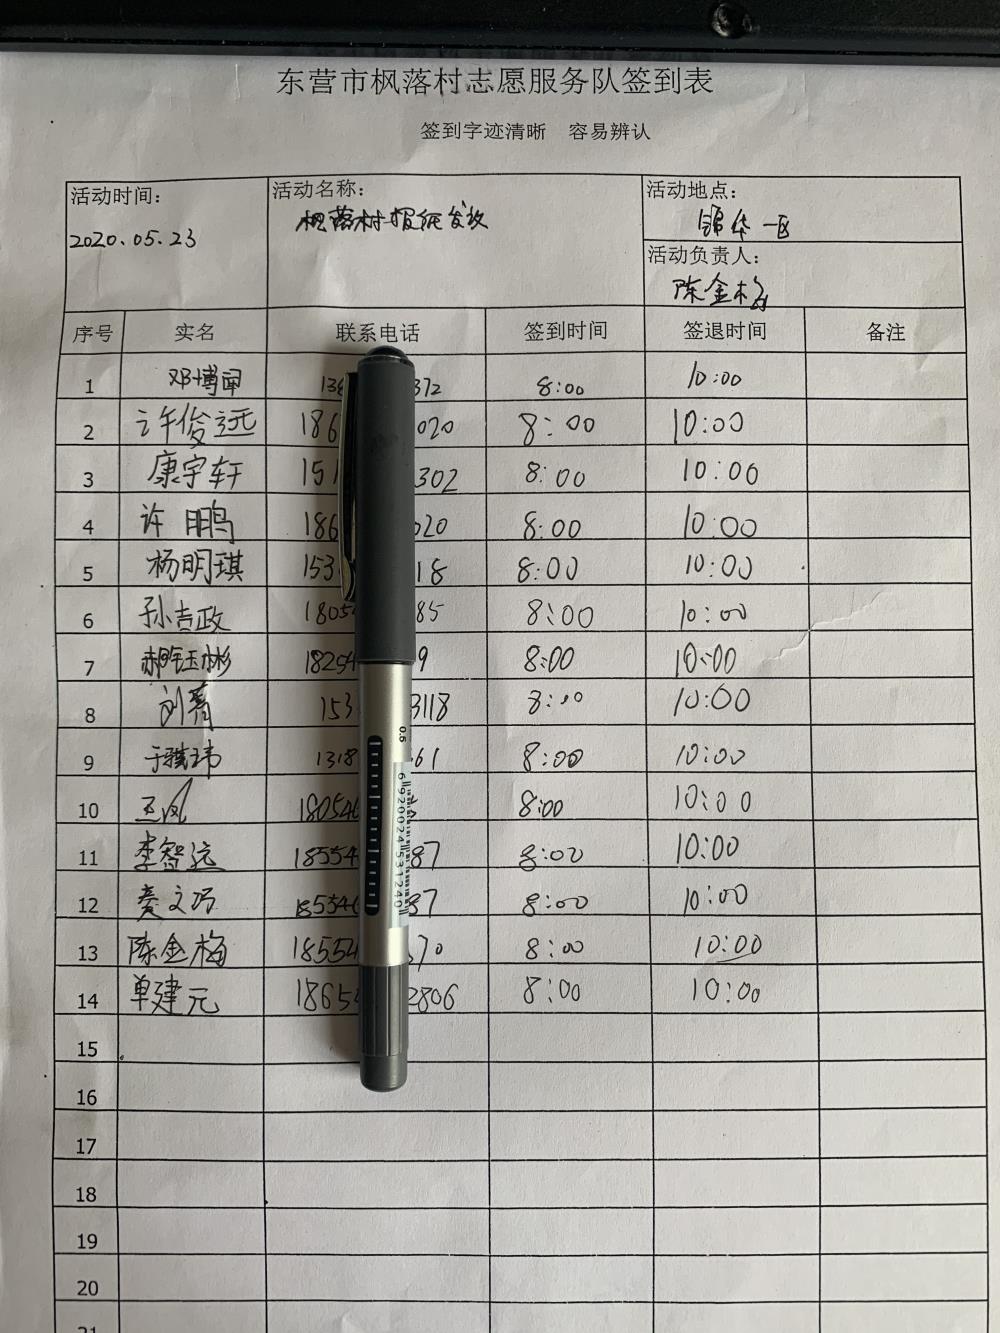 东营市枫落村志愿服务队签到表
签到字迹清晰 容易辨认
活动时间： 活动名称： 活动地点：
2020.05.23 枫落村报纸发放 锦华一区
活动负责人：
陈金梅
序号 实名 联系电话 签到时间 签退时间 备注
1 邓博闻 138 372 8:00 10:00
2 许俊远 186 020 8:00 10:00
3 康宇轩 151 302 8:00 10:00
4 许鹏 186 020 8:00 10:00
5 杨明琪 153 18 8:00 10:00
6 孙吉政 1805 85 8:00 10:00
7 郝钰彬 18254 9 8:00 10:00
8 刘青 153 3118 8:00 10:00
9 于骐玮 1318 61 8:00 10:00
10 王凤 180546 8:00 10:00
11 李智远 18554 87 8:00 10:00
12 秦文巧 185546 87 8:00 10:00
13 陈金梅 18554 70 8:00 10:00
14 单建元 1865 2806 8:00 10:00
15
16
17
18
19
20
21
0.5
6920024531240